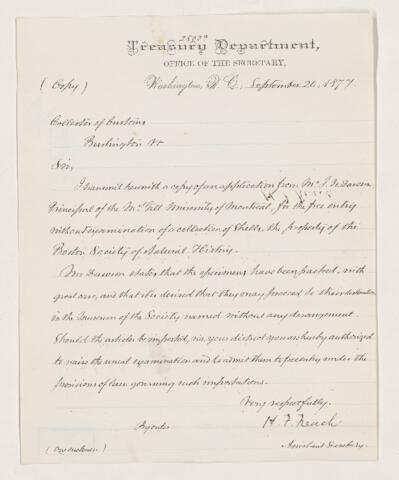 Treasury Department,
OFFICE OF THE SECRETARY,
(Copy) Washington, D. C., September 20, 1877.
Collector of Customs
Burlington Vt
Sir,
I transmit herewith a copy of an application from Mr. J. W. Dawson,
Principal of the McGill University of Montreal, for the free entry
without examination of a collection of Shells, the property of the
Boston Society of Natural History.
Mr. Dawson states that the specimens have been packed, with
great care, and that it is desired that they may proceed to their destination
in the Museum of the Society named without any derangement.
Should the articles be imported, via, your district you are hereby authorized
to waive the usual examination and to admit them to free entry under the
provisions of law governing such importations.
Very respectfully,
H. F. French
By order Assistant Secretary.
(One enclosure)